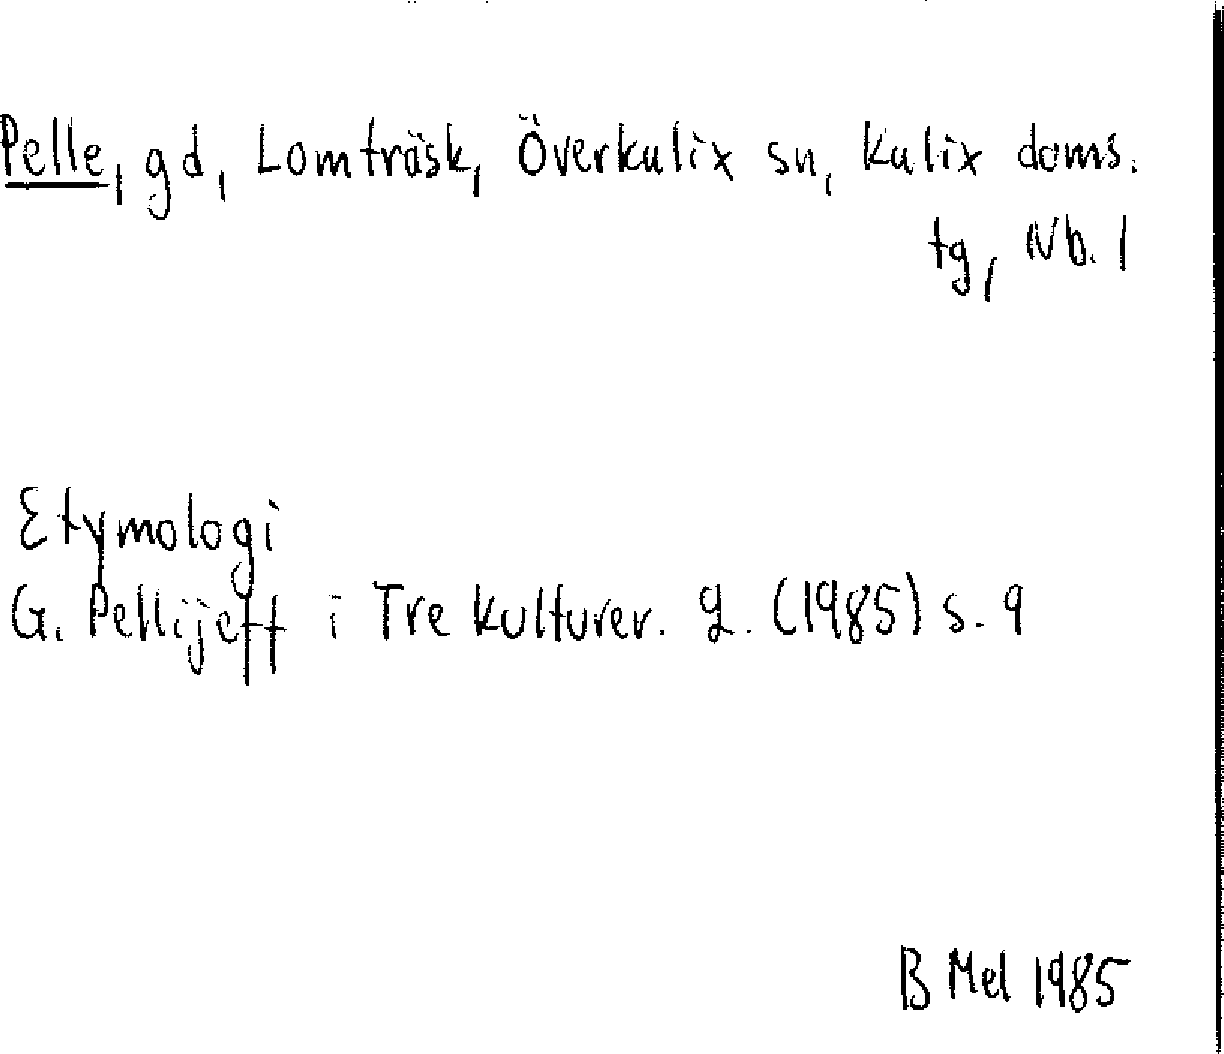 Pelle, gd, Lomträsk, Överkalix sn, Kalix doms.
tg, Nb. l
Etymologi
G. Pellijeff i Tre kulturer. 2. (1985) s. 9
B Mel 1985